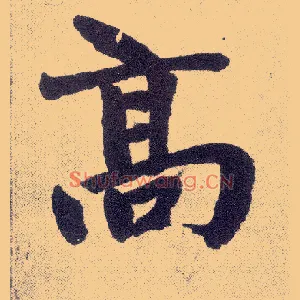 髙
Shufawang.CN